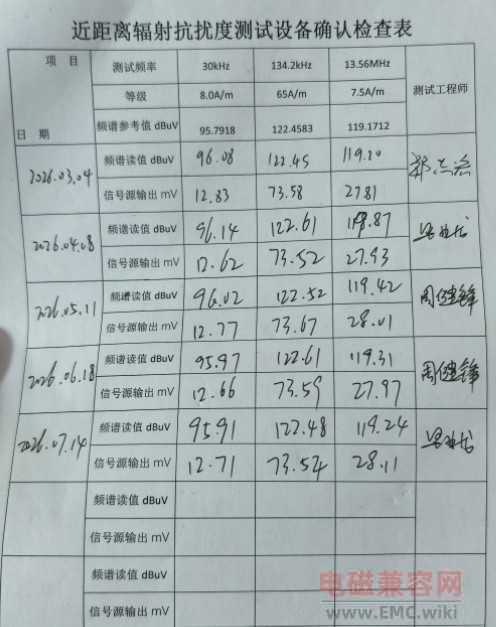 近距离辐射抗扰度测试设备确认检查表
项 目 测试频率 30kHz 134.2kHz 13.56MHz 测试工程师
等级 8.0A/m 65A/m 7.5A/m
日 期 频谱参考值 dBuV 95.7918 122.4583 119.1712
2026.03.04 频谱读值 dBuV 96.08 122.45 119.20
信号源输出 mV 12.83 73.58 27.81
2026.04.08 频谱读值 dBuV 96.14 122.61 118.87
信号源输出 mV 12.62 73.52 27.93
2026.05.11 频谱读值 dBuV 96.02 122.52 119.42 周健锋
信号源输出 mV 12.77 73.67 28.01
2026.06.18 频谱读值 dBuV 95.97 122.61 119.31 周健锋
信号源输出 mV 12.66 73.59 27.97
2026.07.14 频谱读值 dBuV 95.91 122.48 119.24
信号源输出 mV 12.71 73.54 28.11
频谱读值 dBuV
信号源输出 mV
频谱读值 dBuV
信号源输出 mV
电磁兼容网
www.EMC.wiki